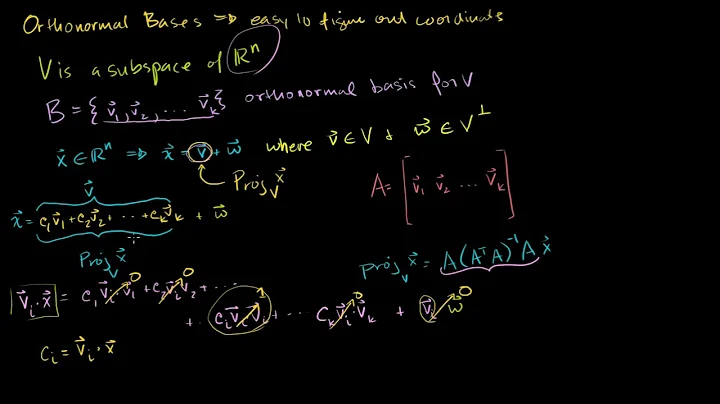 Orthonormal Bases ⇒ easy to figure out coordinates
V is a subspace of ℝⁿ
B = {v⃗₁, v⃗₂, ... v⃗ₖ} orthonormal basis for V
x⃗ ∈ ℝⁿ ⇒ x⃗ = v⃗ + w⃗ where v⃗ ∈ V + w⃗ ∈ V^⊥
Proj_V x⃗
A = [v⃗₁ v⃗₂ ... v⃗ₖ]
v⃗
x⃗ = c₁v⃗₁ + c₂v⃗₂ + ... + cₖv⃗ₖ + w⃗
Proj_V x⃗
Proj_V x⃗ = A(AᵀA)⁻¹A x⃗
v⃗ᵢ · x⃗ = c₁v⃗ᵢ·v⃗₁ 0 + c₂v⃗ᵢ·v⃗₂ 0 + ...
+ . cᵢv⃗ᵢ·v⃗ᵢ 1 + ... cₖv⃗ᵢ·v⃗ₖ 0 + v⃗ᵢ·w⃗ 0
cᵢ = v⃗ᵢ · x⃗